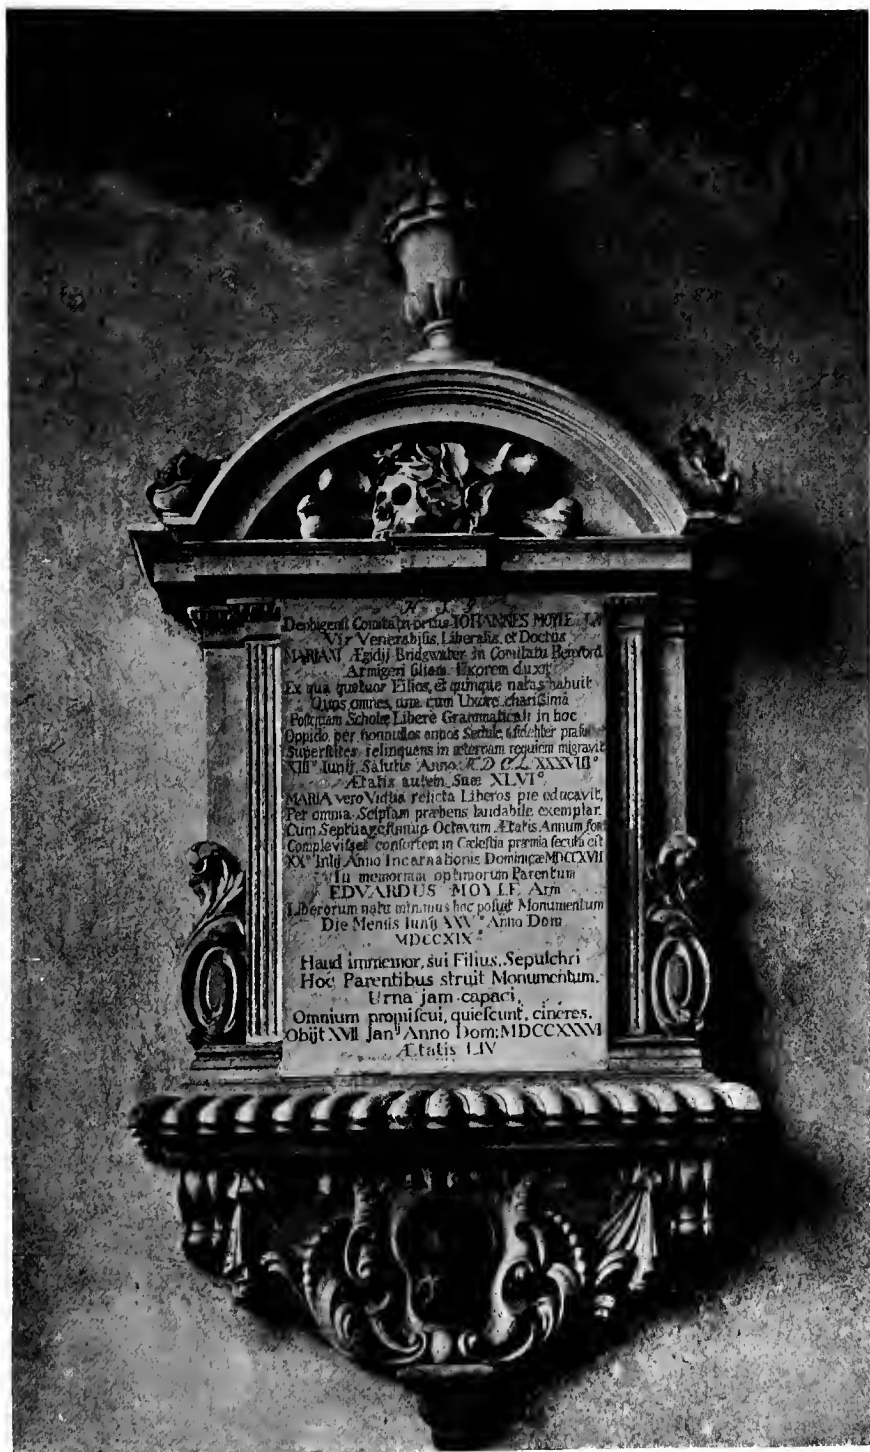 H S J
Denbigensi Comitatu ortus IOHANNES MOYLE
Vir Venerabilis, Liberalis, et Doctus
MARIAM Ægidij Bridgwater in Comitatu Hereford
Armigeri filiam Uxorem duxit
Ex qua quatuor Filios, et quinque natas habuit
Quos omnes, una cum Uxore charissima
Postquam Scholæ Liberæ Grammaticali in hoc
Oppido, per nonnullos annos Sedule, & fideliter
Superstites relinquens in æternam requiem migravit
XIII° Iunij, Salutis Anno XXXVIII°
Ætatis autem Suæ XLVI°.
MARIA vero Vidua relicta Liberos pie educavit,
Per omnia Seipsam præbens laudabile exemplar.
Cum Septuagesimum Octavum Ætatis Annum
Complevisset consortem in Cælestia præmia secuta est
XX° Anno Incarnationis Dominicæ MDCCXVII
In memoriam optimorum Parentum
EDVARDUS MOYLE Arm
Liberorum natu minimus hoc posuit Monumentum
Die Mensis Iunij XXV° Anno Dom
MDCCXIX
Haud immemor, sui Filius, Sepulchri
Hoc Parentibus struit Monumentum.
Urna jam capaci,
Omnium promiscui, quiescunt, cineres.
Obijt XVII Janij Anno Dom: MDCCXXXVI
Ætatis LIV